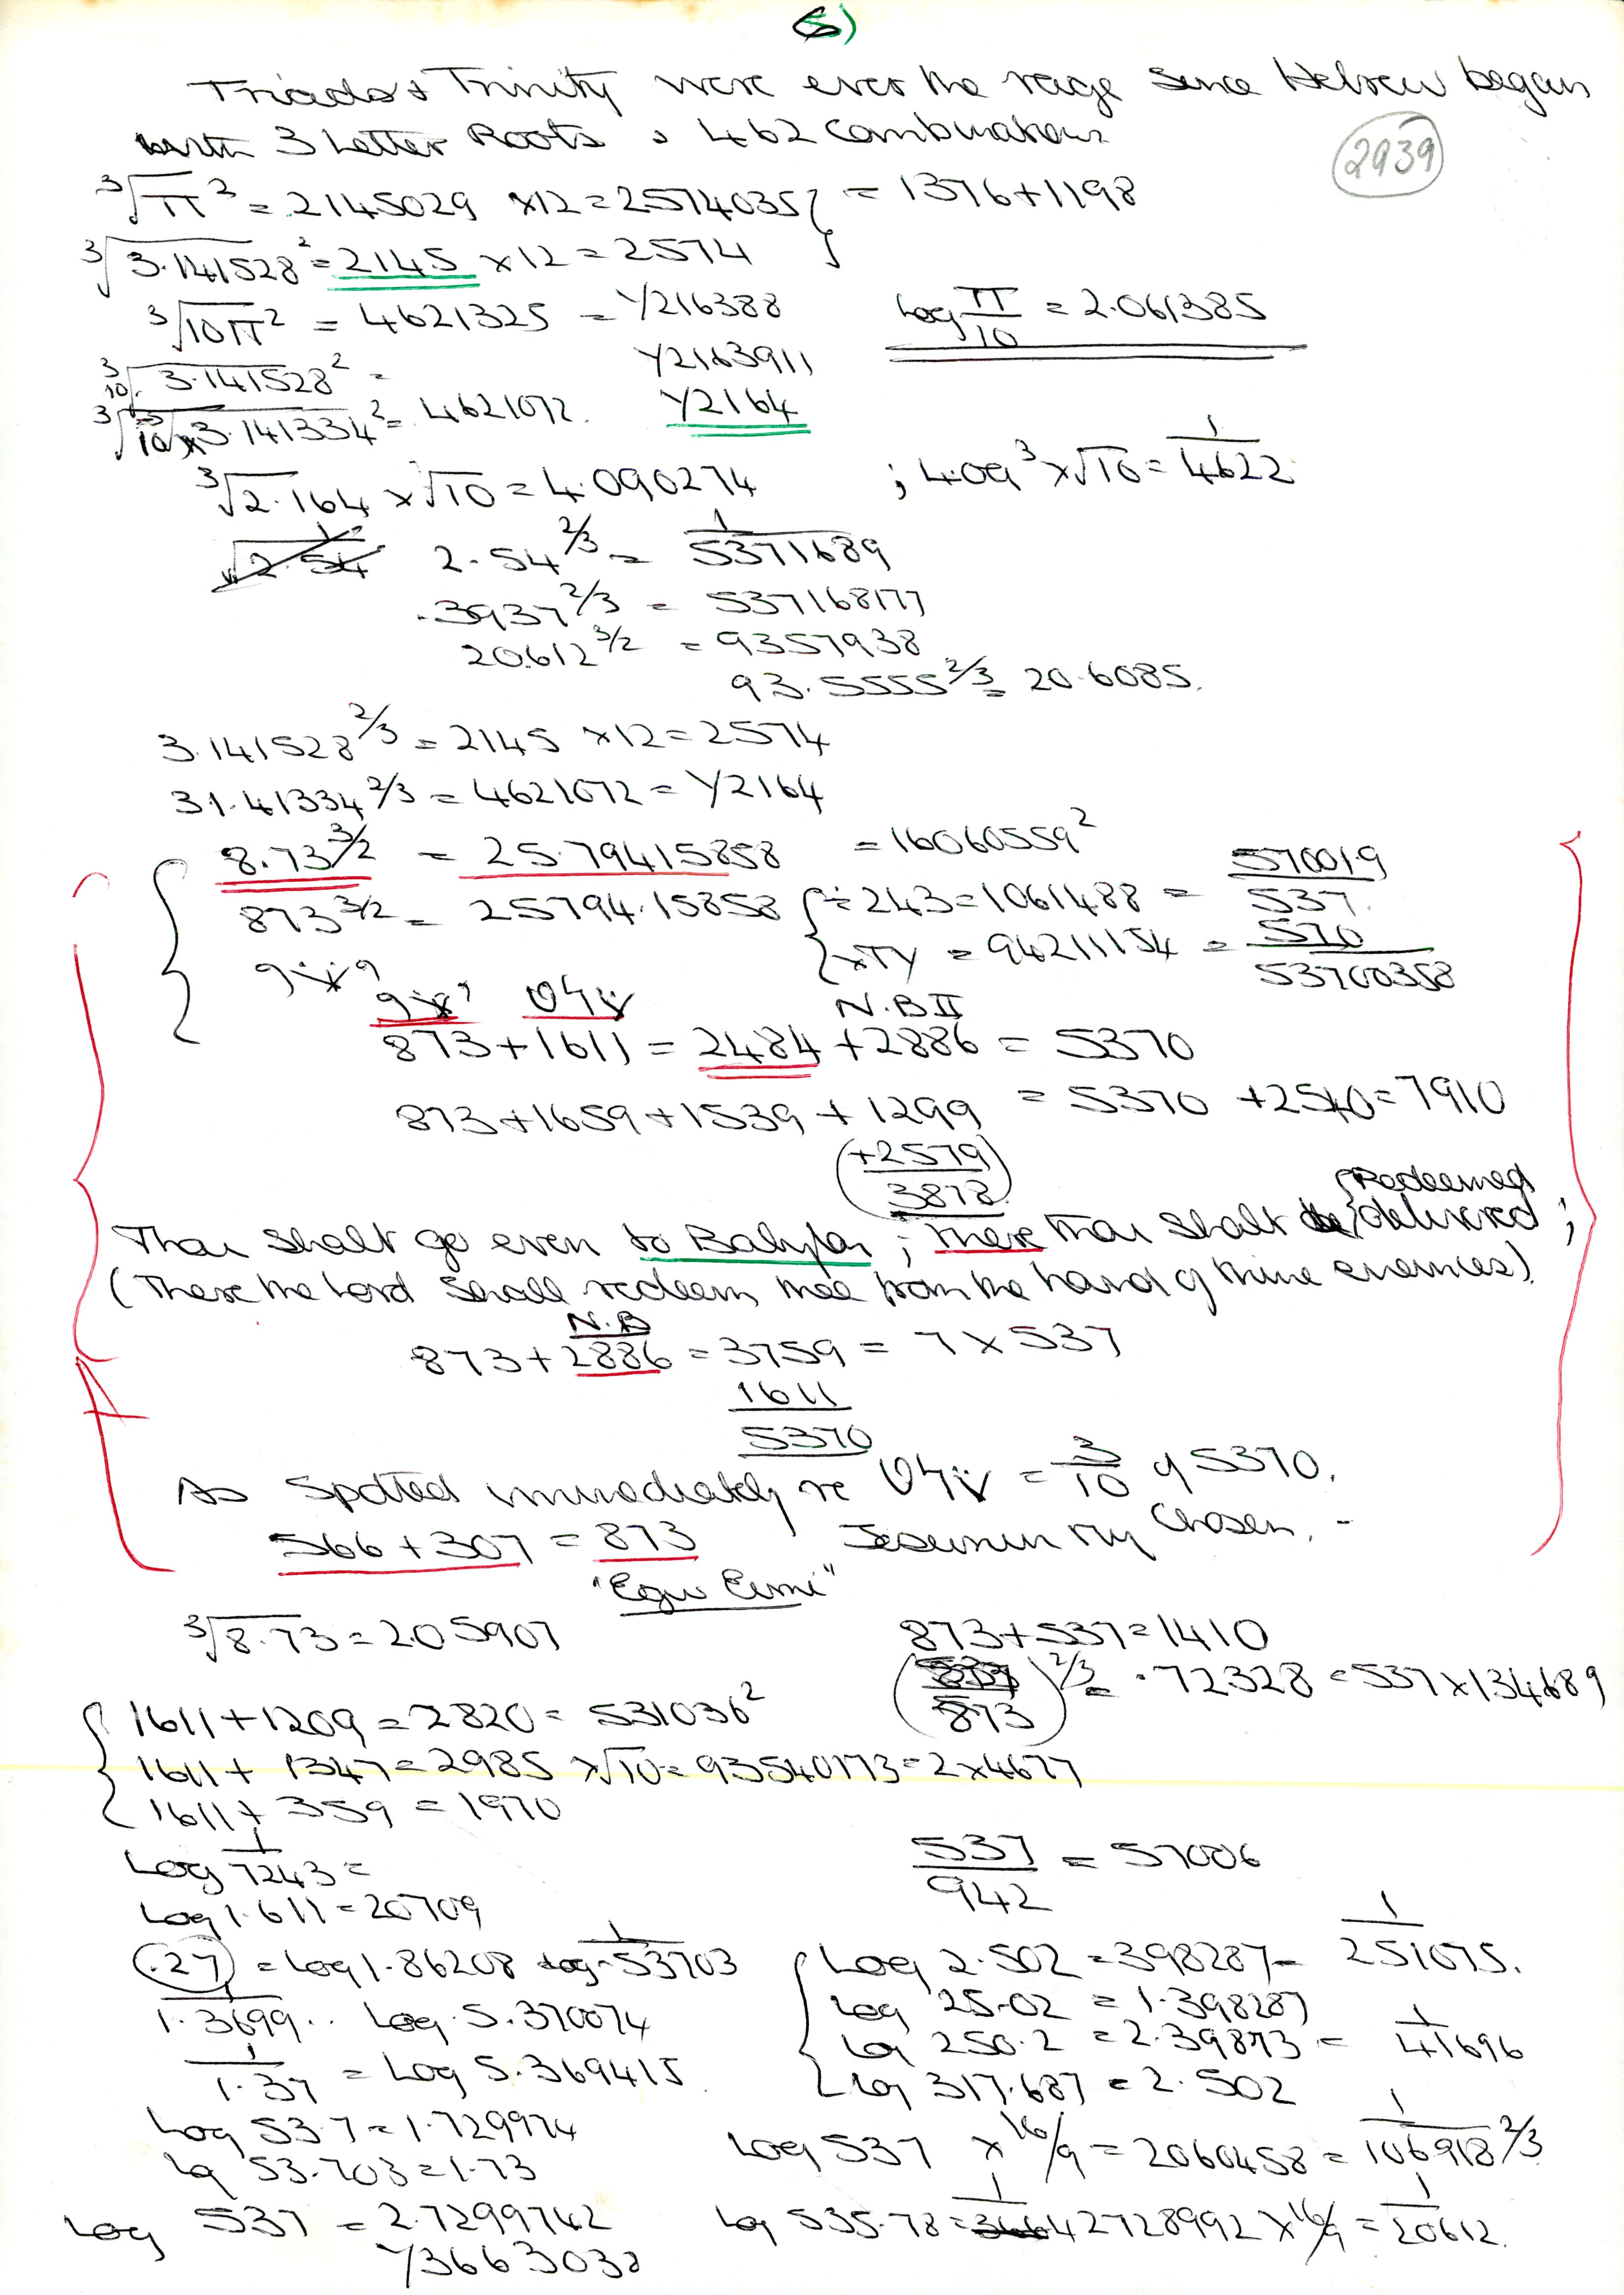 5)
Triads & Trinity were ever the rage since Hebrew began
with 3 Letter Roots, 462 Combinations
2939
³√π² = 2145029 ×12 = 2574035 } = 1376+1198
³√3.141528² = 2145 ×12 = 2574
³√10π² = 4621325 = Y216388
Log π/10 = 2.061385
³√10. 3.141528² = Y2163911
³√10×3.141334² = 4621072. Y2164
³√2.164 × √10 = 4.090274 ; 4.09³ × √10 = 1/4622
√2.54 2.54^2/3 = 1/5371689
.3937^2/3 = 537168177
20.612^3/2 = 9357938
93.5555^2/3 = 20.6085.
3.141528^2/3 = 2145 ×12 = 2574
31.41334^2/3 = 4621072 = Y2164
8.73^3/2 = 25.79415858 = 16060559²
873^3/2 = 25794.15858 { ÷ 243 = 1061488 = 570019/537.
×TY = 94211154 = 570/53700358
N.B II
873+1611 = 2484 +2886 = 5370
873+1659+1539+1299 = 5370 +2540 = 7910
(+2579
3878)
Redeemed
Thou shalt go even to Babylon ; there thou shalt be delivered ;
(There the Lord shall redeem thee from the hand of thine enemies).
N.B
873+2886 = 3759 = 7×537
1611
5370
As spotted immediately re = 3/10 of 5370.
566+307 = 873 My Chosen. -
"Egw Eimi"
³√8.73 = 2.05907
873+537 = 1410
(537/873)^2/3 = .72328 = 537×134689
1611+1209 = 2820 = 531036²
1611+1347 = 2985 ×√10 = 93540173 = 2×4677
1611+359 = 1970
Log 1/7243 =
537/942 = 57006
Log 1.611 = 20709
(.27) = Log 1.86208 Log 1/.53703
1/1.3699.. Log. 5.370074
1/1.37 = Log 5.369415
Log 53.7 = 1.729974
Lg 53.703 = 1.73
Log 537 = 2.7299742
Y3663038
Log 2.502 = 398287 = 1/251075.
Log 25.02 = 1.398287
Lg 250.2 = 2.39873 = 1/41696
Lg 317.687 = 2.502
Log 537 ×16/9 = 2060458 = 1/106918^2/3
Lg 535.78 = 1/3664 2728992 ×16/9 = 1/20612.